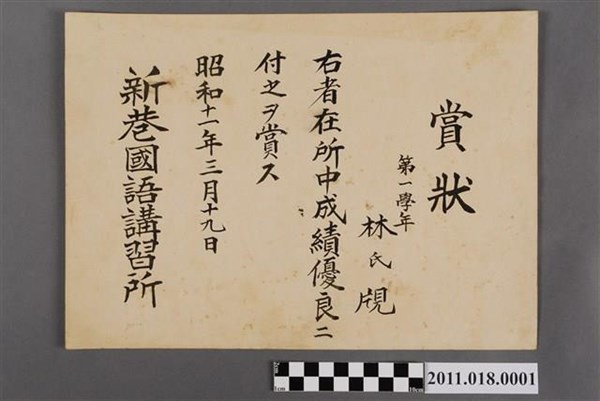 賞狀
第一學年
林氏
右者在所中成績優良ニ
付之ヲ賞ス
昭和十一年三月十九日
新巷國語講習所
2011.018.0001